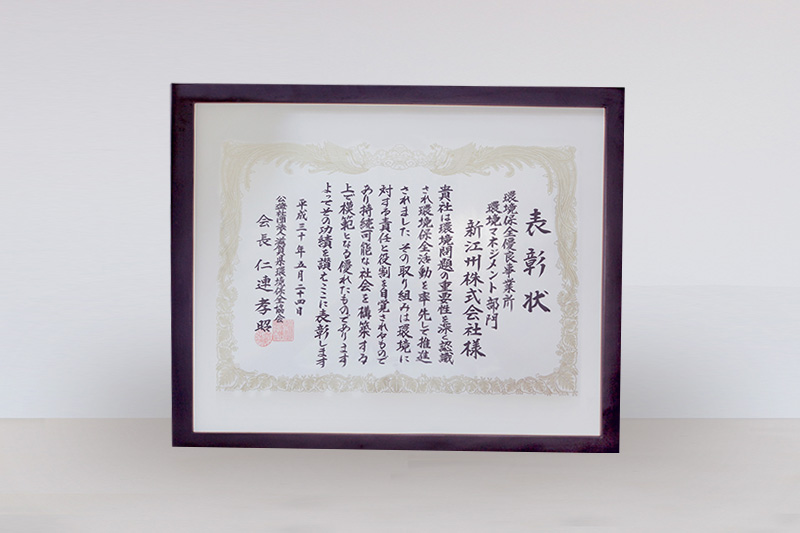 表彰状
環境保全優良事業所
環境マネジメント部門
新江州株式会社様
貴社は環境問題の重要性を深く認識
され環境保全活動を率先して推進
されました その取り組みは環境に
対する責任と役割を自覚されたもので
あり持続可能な社会を構築する
上で模範となる優れたものであります
よってその功績を讃えここに表彰します
平成三十年五月二十四日
公益社団法人滋賀県環境保全協会
会長 仁連孝昭